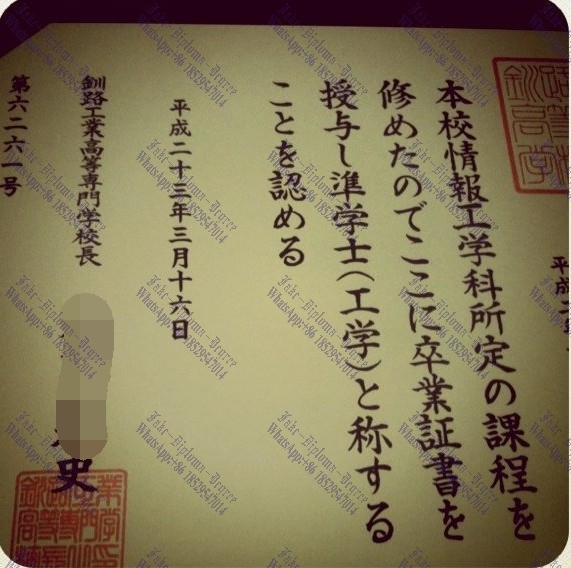 平成二
本校情報工学科所定の課程を
修めたのでここに卒業証書を
授与し準学士(工学)と称する
ことを認める
平成二十三年三月十六日
釧路工業高等専門学校長
史
第六二六一号
Fake-Diploma-Degree
WhatsApp:+86 18529547014